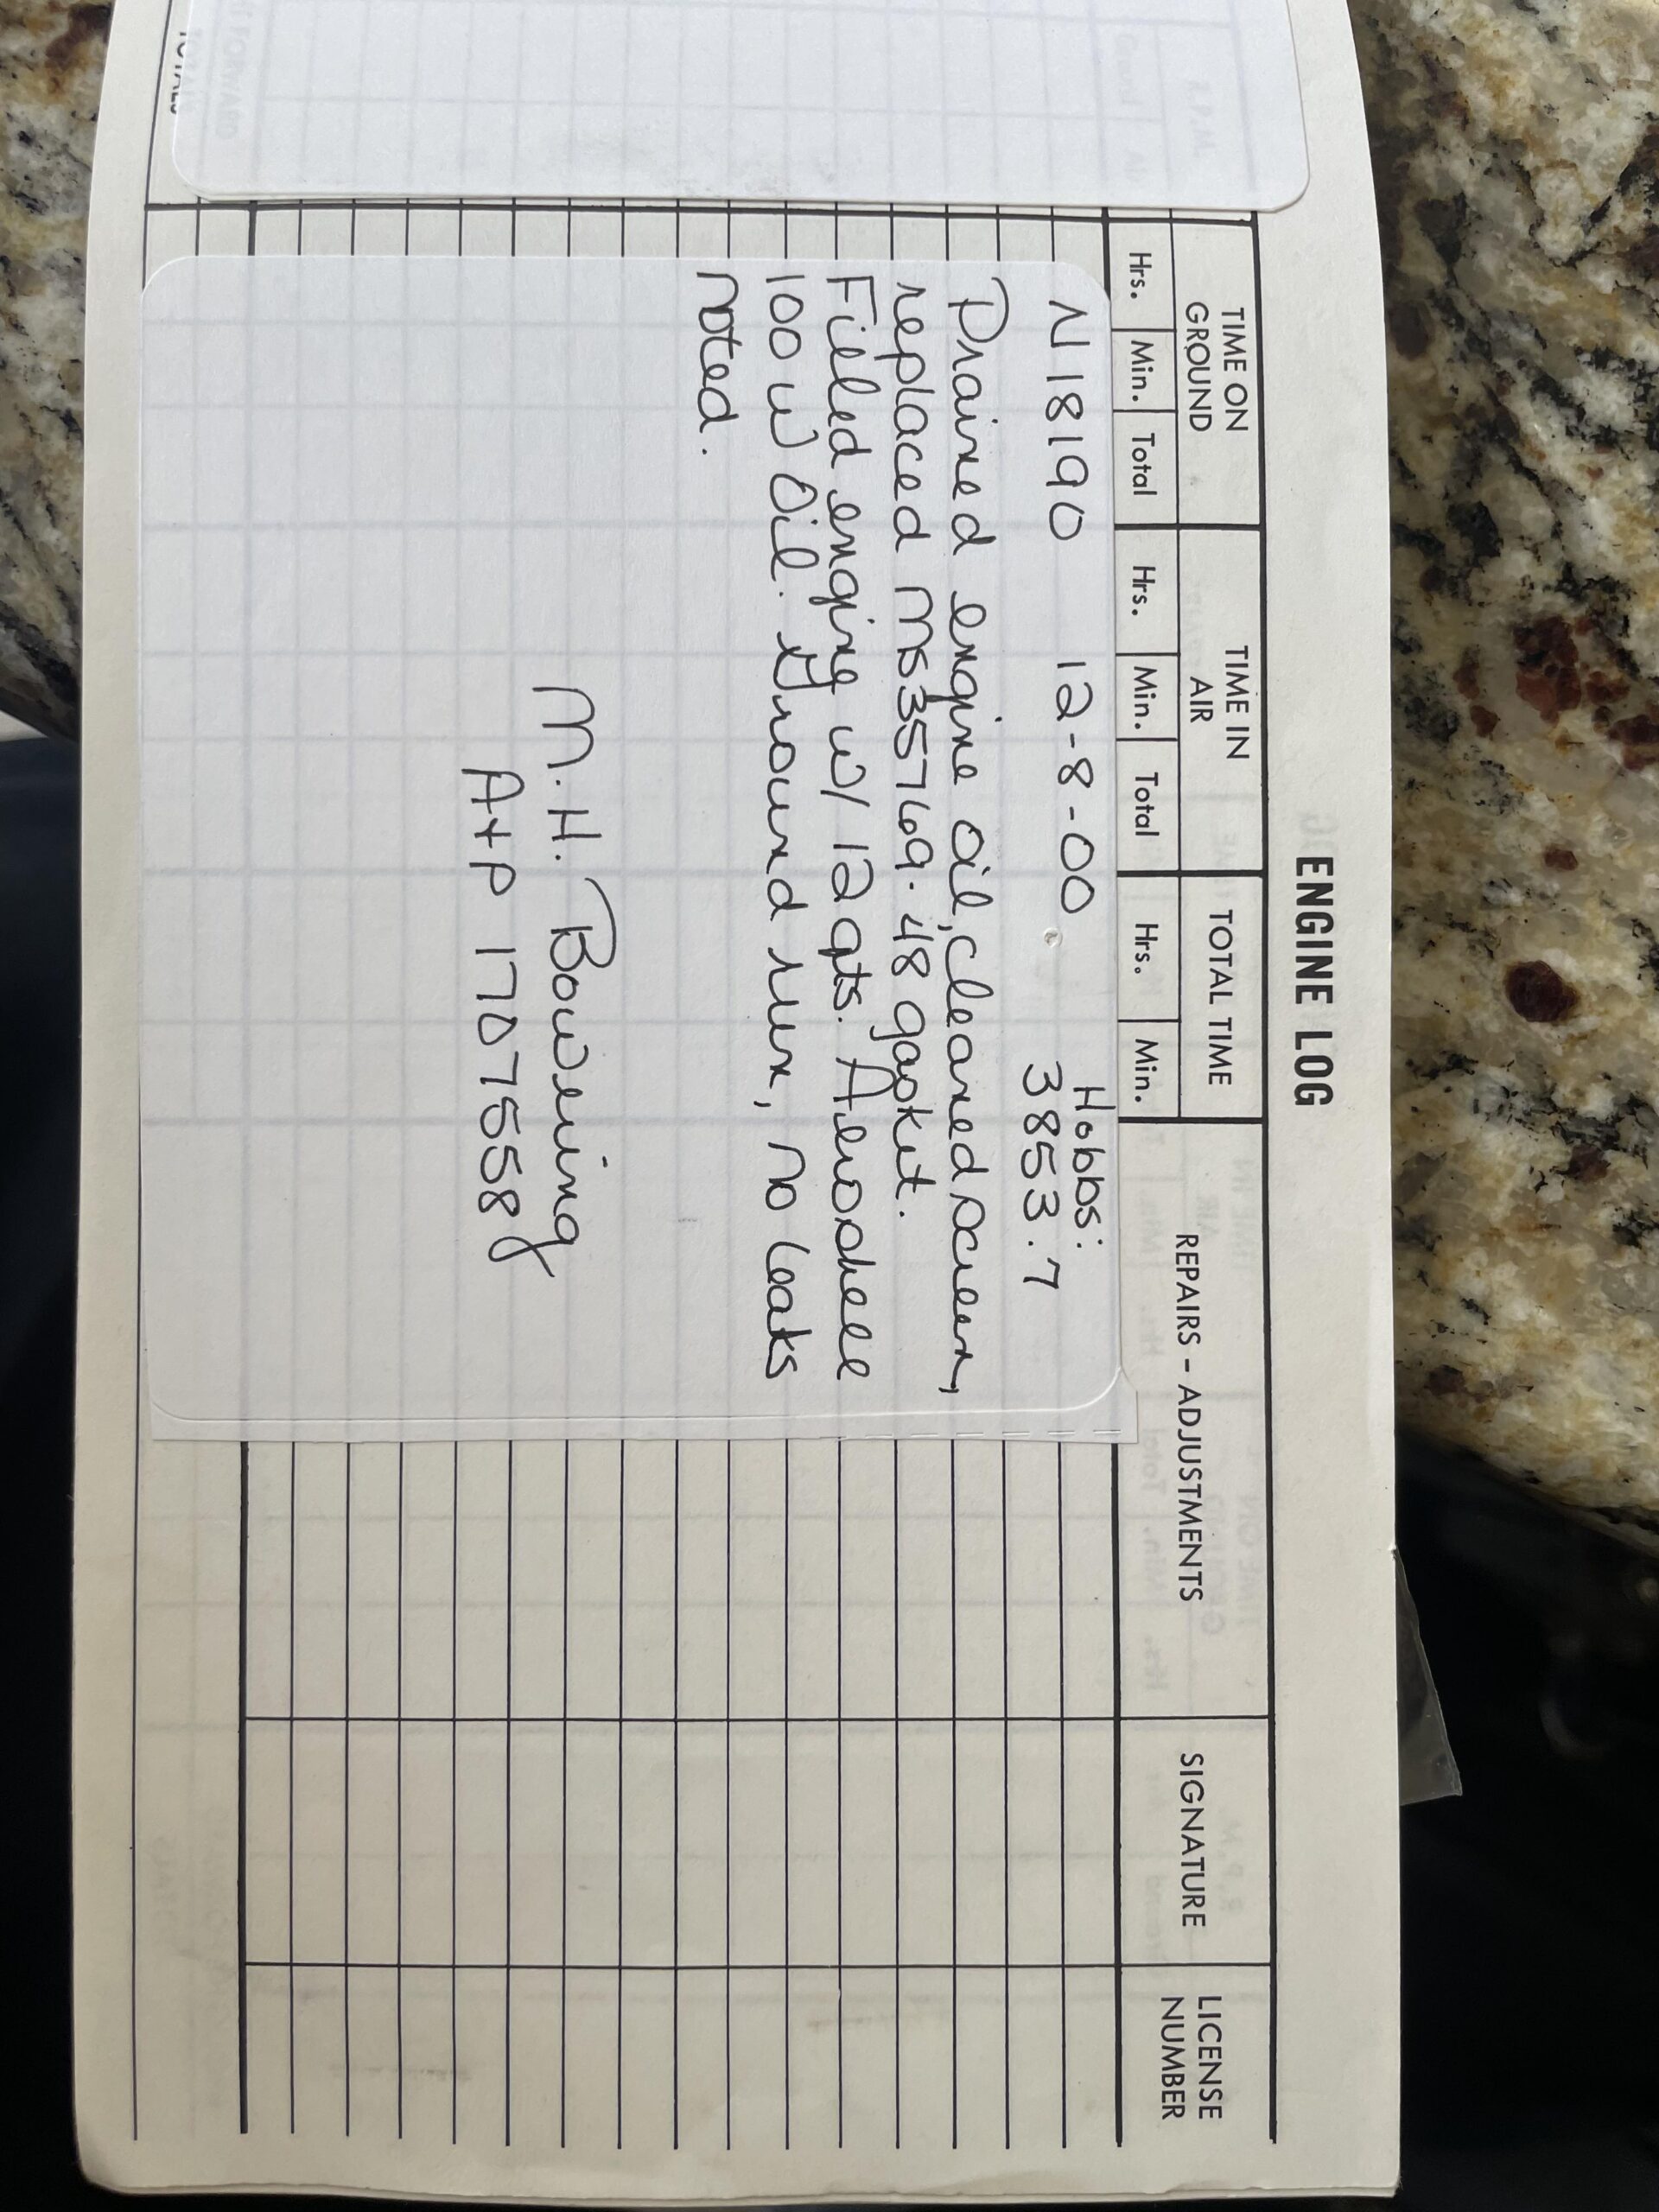 ENGINE LOG
TIME ON GROUND
TIME IN AIR
TOTAL TIME
REPAIRS - ADJUSTMENTS
SIGNATURE
LICENSE NUMBER
Hrs. Min. Total Hrs. Min. Total Hrs. Min.
N18190 12-8-00 Hobbs: 3853.7
Drained engine oil, cleaned screen,
replaced MS35769-48 gasket.
Filled engine w/ 12 qts. Aeroshell
100 W Oil. Ground run, no leaks
noted.
M. H. Bowening
A+P 17075558
TOTALS